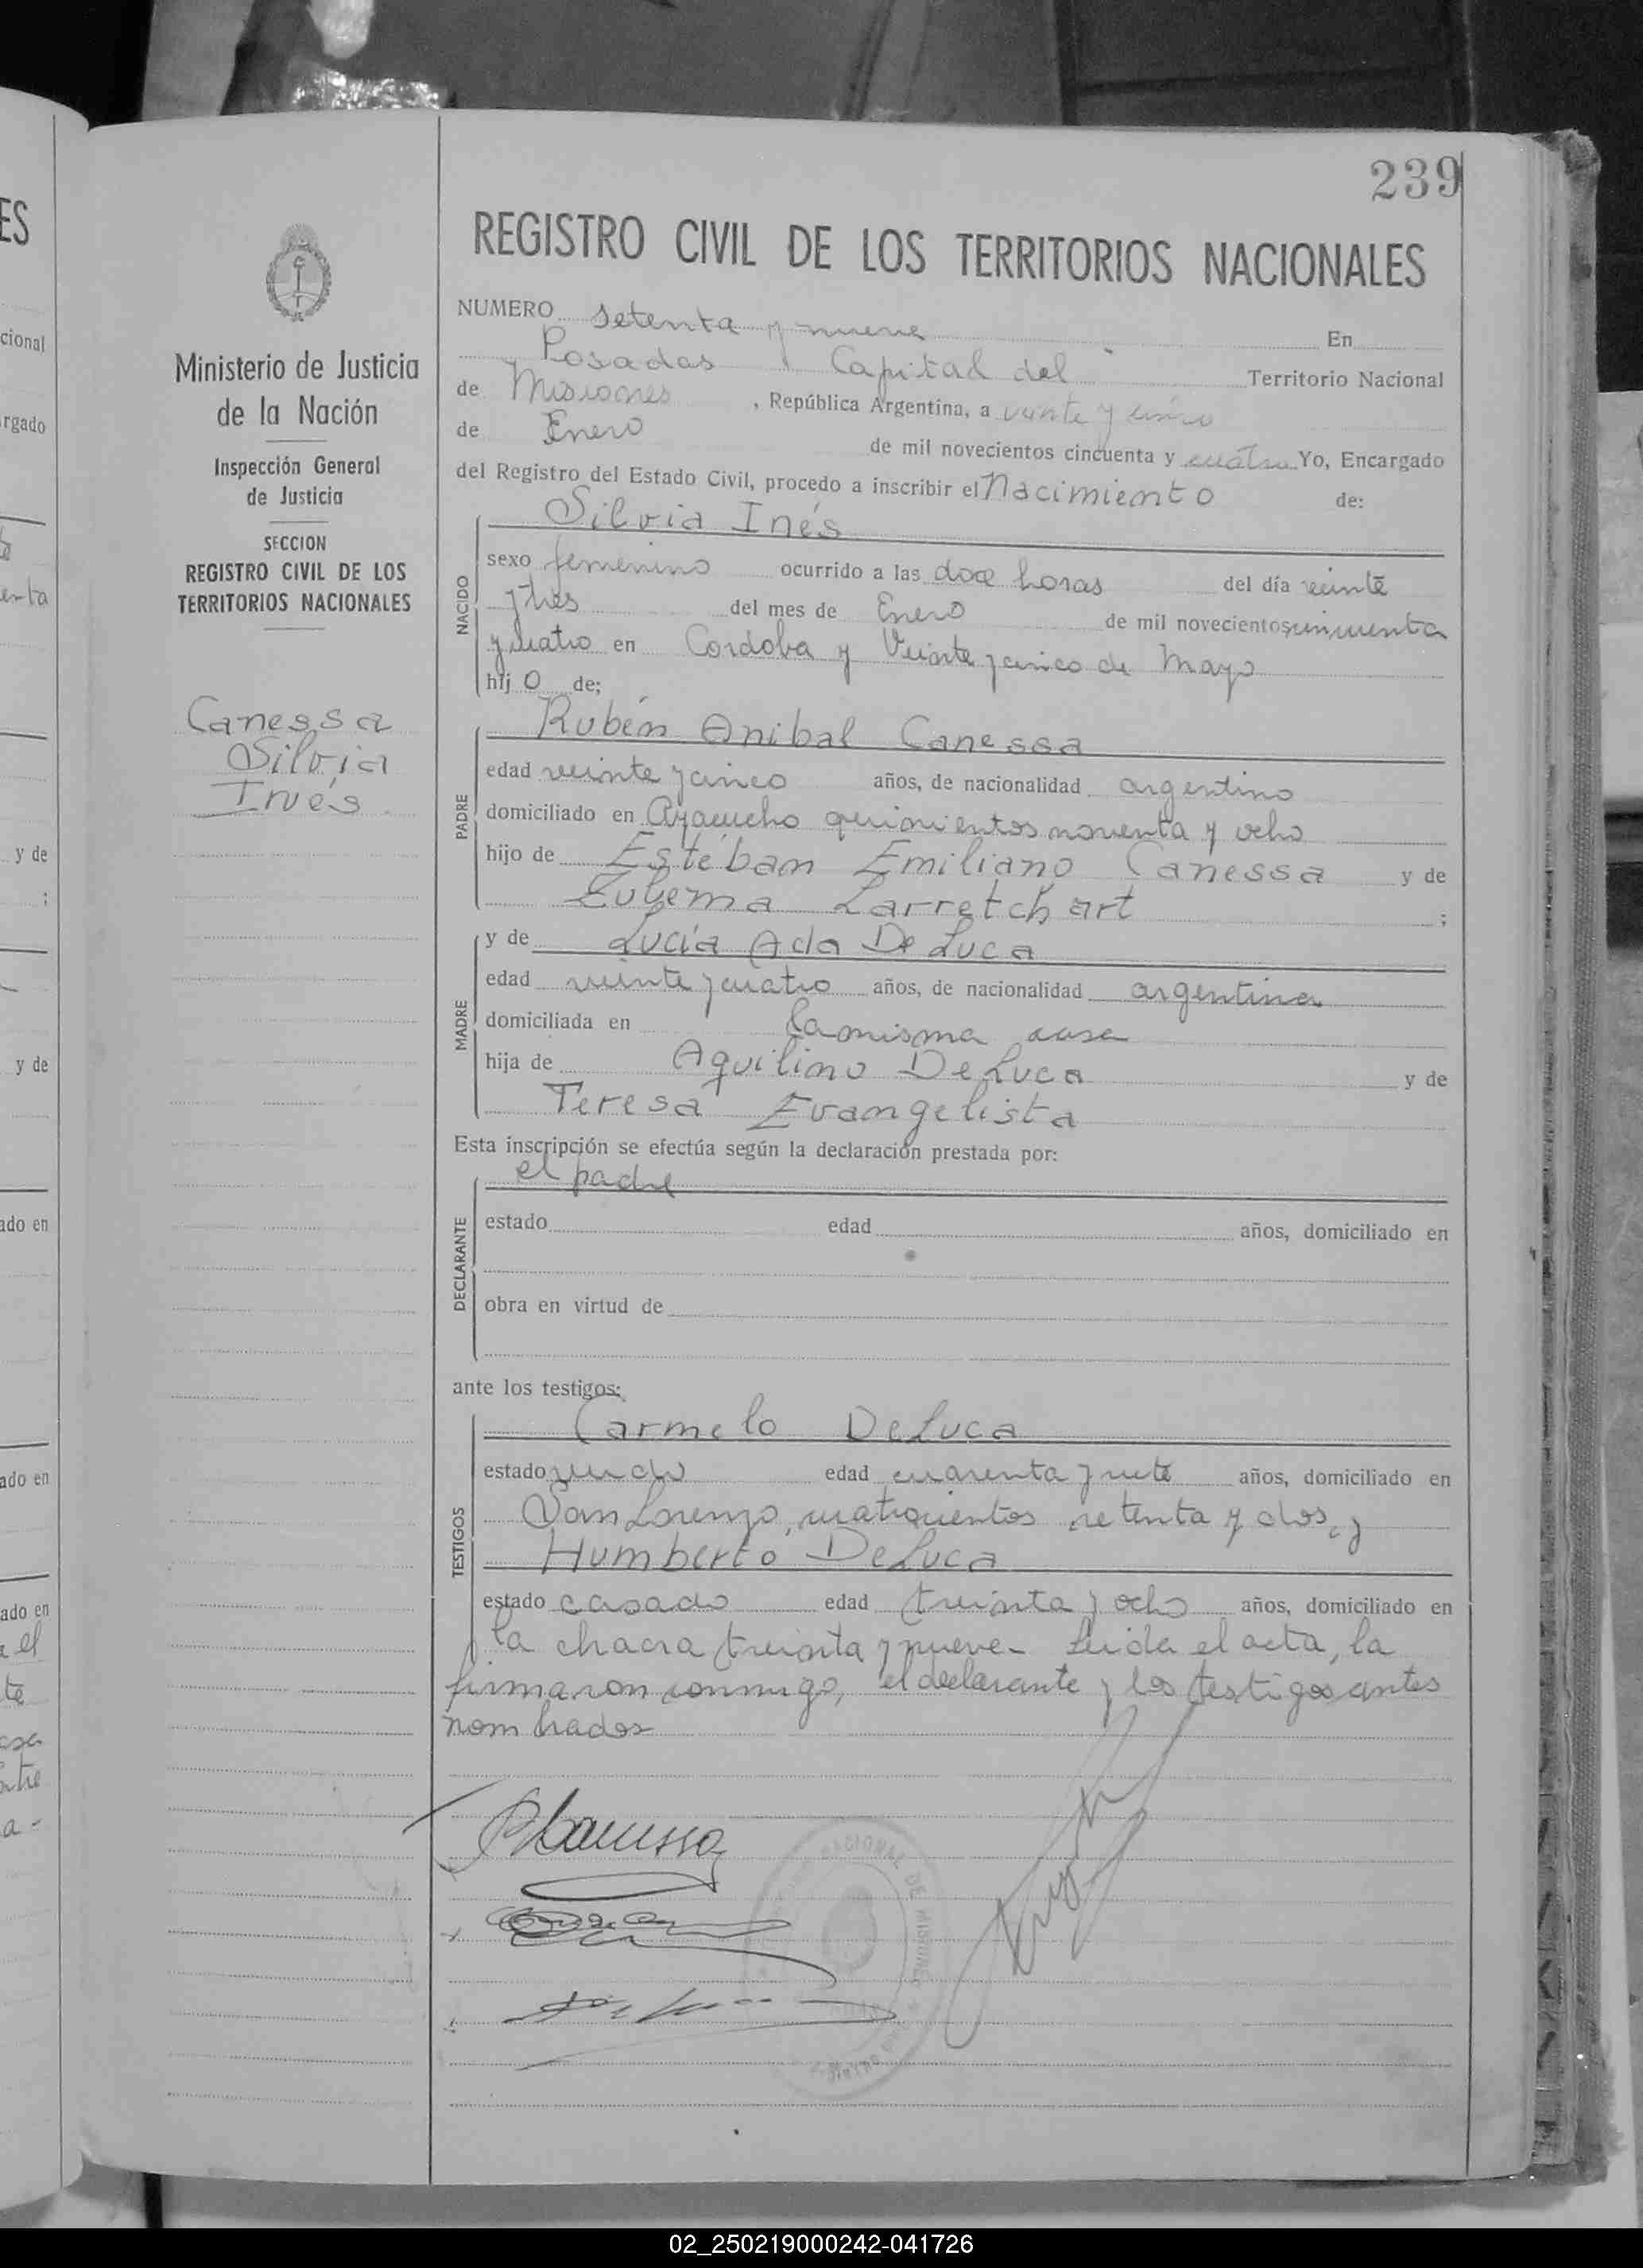 239
REGISTRO CIVIL DE LOS TERRITORIOS NACIONALES
Ministerio de Justicia
de la Nación
Inspección General
de Justicia
SECCION
REGISTRO CIVIL DE LOS
TERRITORIOS NACIONALES
Canessa
Silvia
Inés
NUMERO setenta y nueve En
Posadas Capital del Territorio Nacional
de Misiones, República Argentina, a veinte y cinco
de Enero de mil novecientos cincuenta y cuatro Yo, Encargado
del Registro del Estado Civil, procedo a inscribir el Nacimiento de:
NACIDO
Silvia Inés
sexo femenino ocurrido a las doce horas del día veinte
y tres del mes de Enero de mil novecientos cincuenta
y cuatro en Cordoba y Veinte y cinco de Mayo
hij o de;
PADRE
Rubén Anibal Canessa
edad veinte y cinco años, de nacionalidad argentino
domiciliado en Ayacucho quinientos noventa y ocho
hijo de Esteban Emiliano Canessa y de
Zulema Larretchart ;
MADRE
y de Lucía Ada De Luca
edad veinte y cuatro años, de nacionalidad argentina
domiciliada en la misma casa
hija de Aquilino De Luca y de
Teresa Evangelista
Esta inscripción se efectúa según la declaración prestada por:
DECLARANTE
el padre
estado edad años, domiciliado en
obra en virtud de
ante los testigos:
TESTIGOS
Carmelo De Luca
estado viudo edad cuarenta y siete años, domiciliado en
San Lorenzo, cuatrocientos setenta y dos, y
Humberto De Luca
estado casado edad treinta y ocho años, domiciliado en
la chacra treinta y nueve - Leida el acta, la
firmaron conmigo, el declarante y los testigos antes
nombrados
RCanessa
02_250219000242-041726